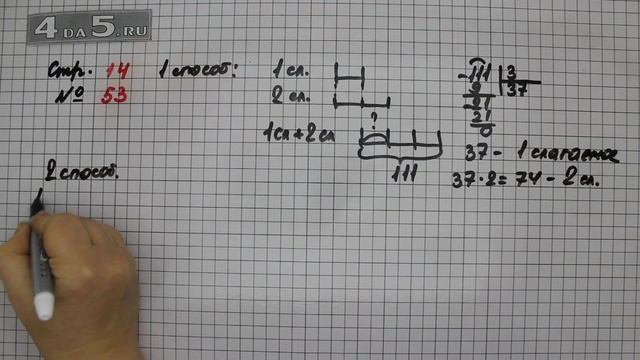 4 ДА 5.RU
Стр. 14
№ 53
1 способ:
1 сл.
2 сл.
?
1сл + 2 сл
111
-111 3
9 37
-21
21
0
37 - 1 слагаемое
37 · 2 = 74 - 2 сл.
2 способ.